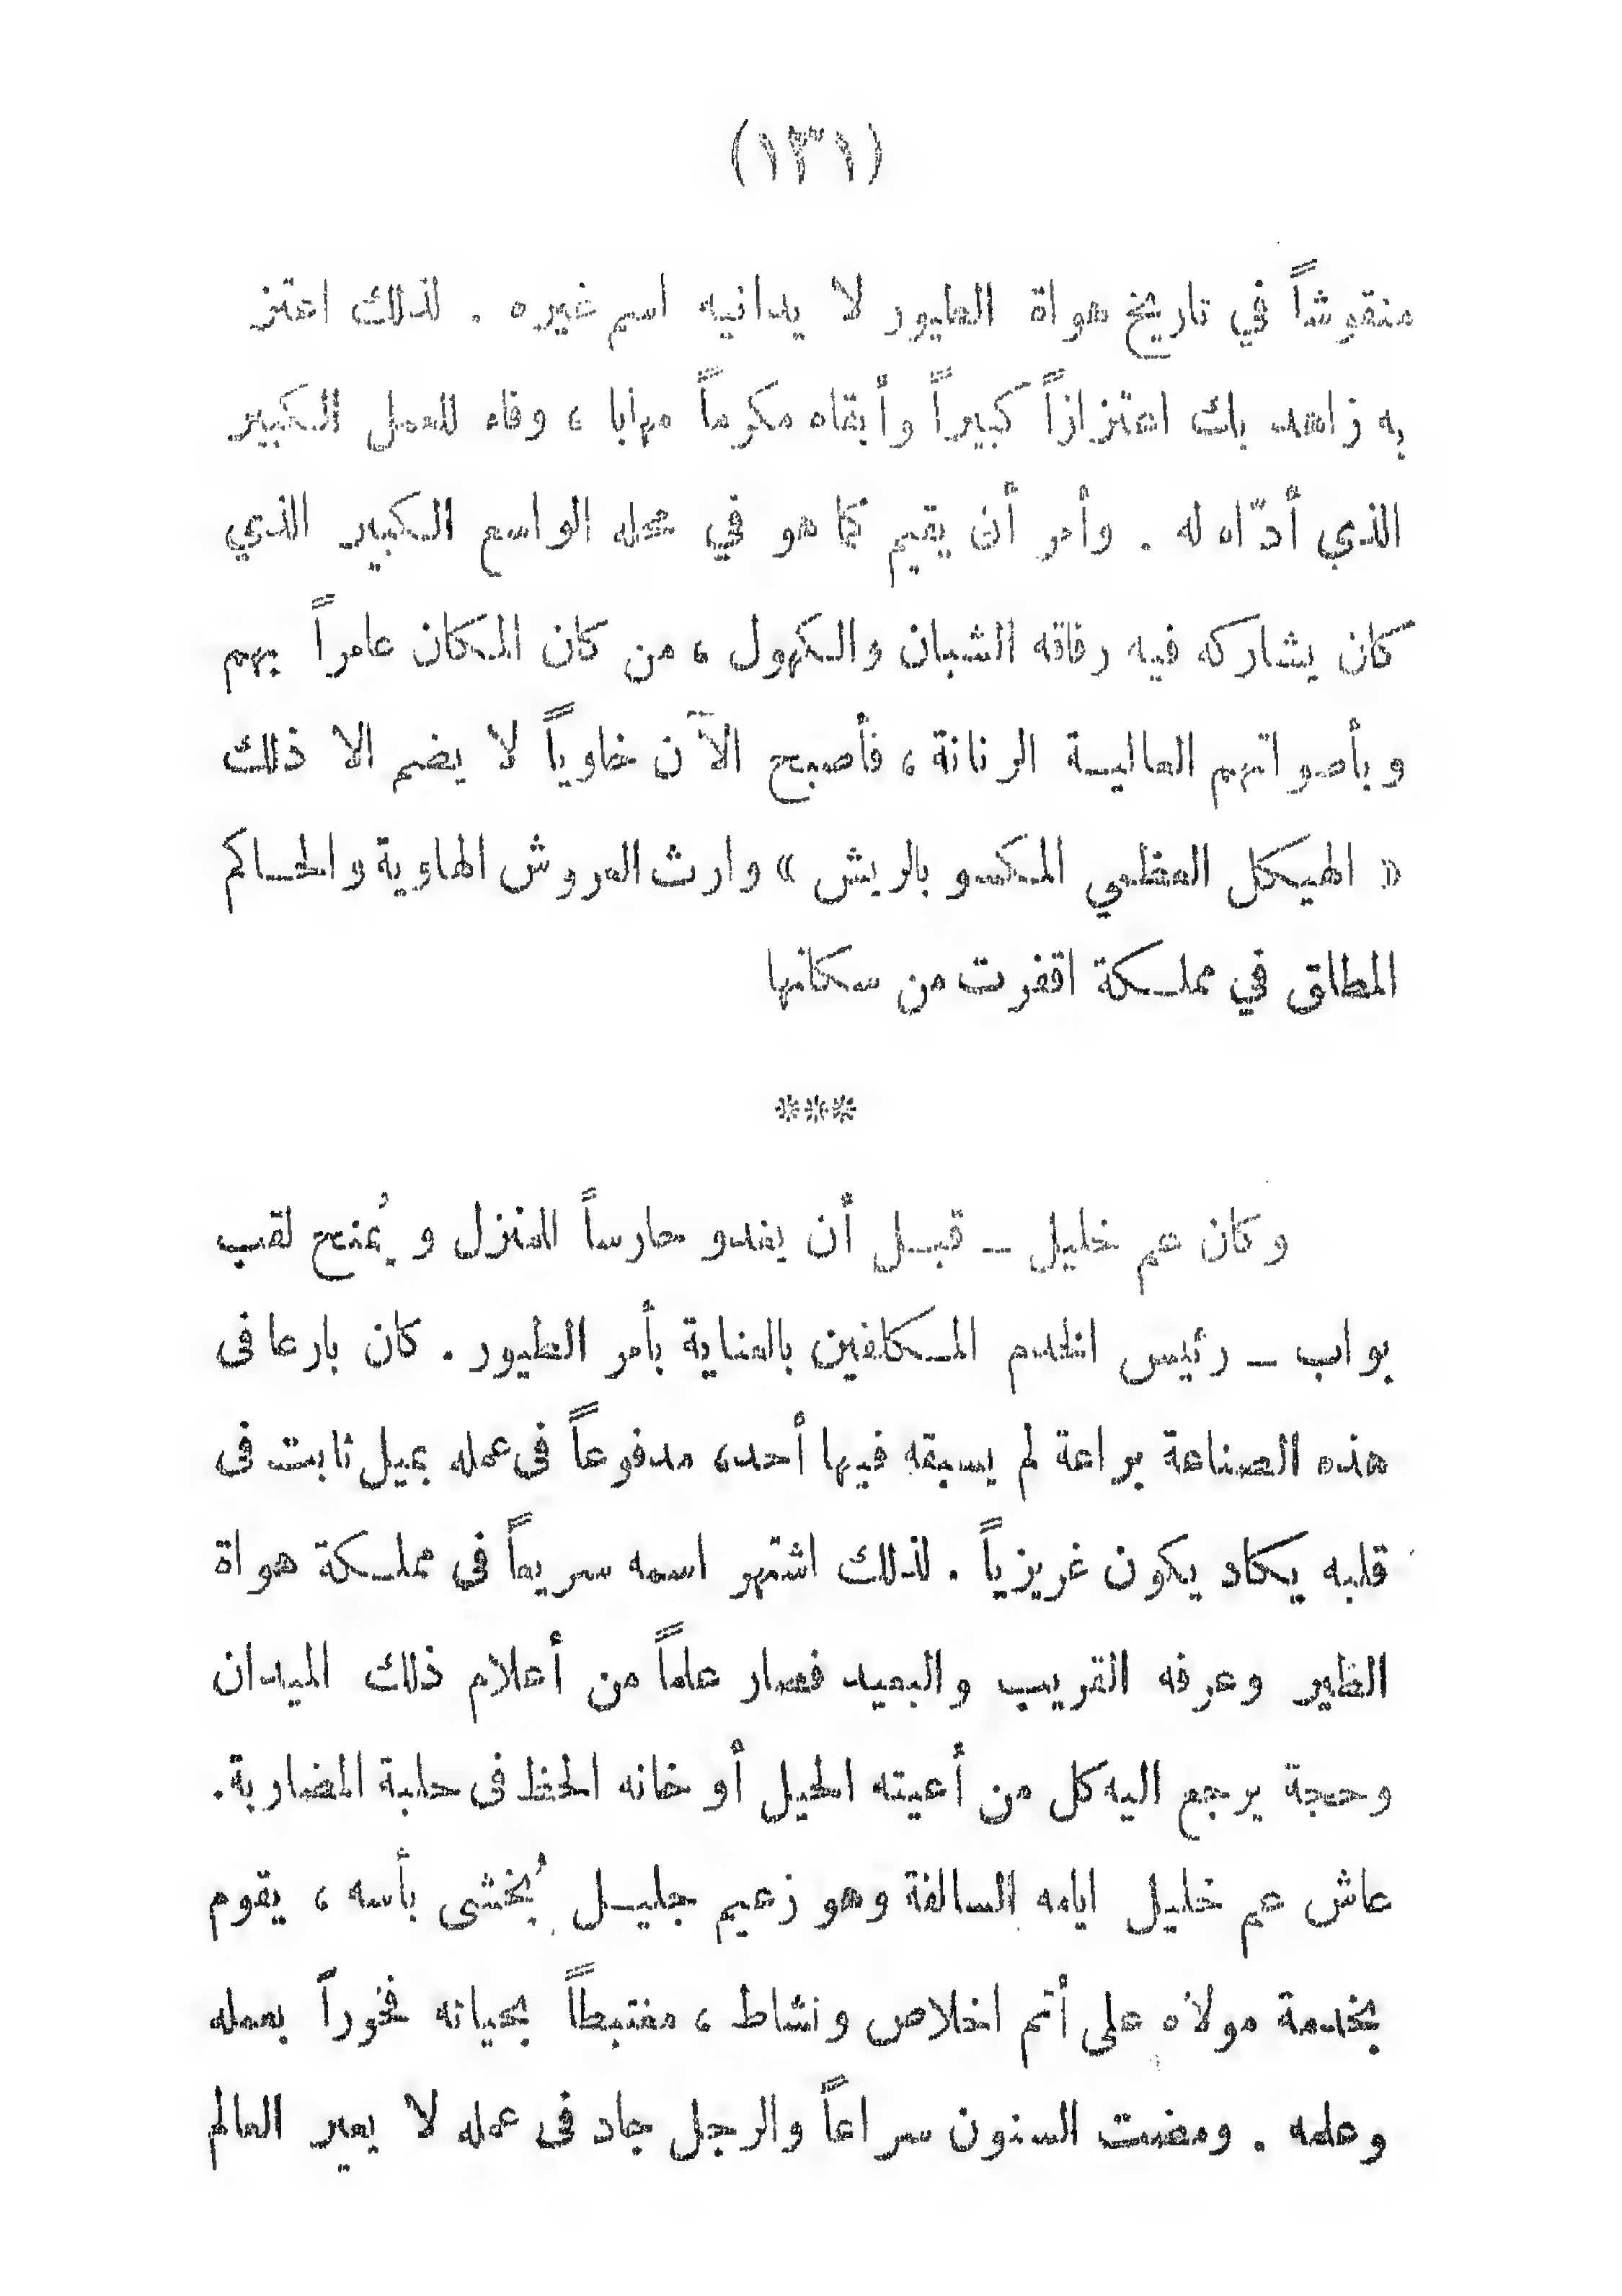 (١٣١)
منقوشاً في تاريخ هواة الطيور لا يدانيه اسم غيره . لذلك اعتز
به زاهد بك اعتزازاً كبيراً وأبقاه مكرماً مهابا ، وفاء للعمل الكبير
الذي أدّاه له . وأمر أن يقيم كما هو في محله الواسع الكبير الذي
كان يشاركه فيه رفاقه الشبان والكهول ، من كان المكان عامراً بهم
وبأصواتهم العالية الرنانة ، فأصبح الآن خاوياً لا يضم الا ذلك
« الهيكل العظمي المكسو بالريش » وارث العروش الهاوية والحاكم
المطلق في مملكة اقفرت من سكانها
***
وكان عم خليل ــ قبل أن يغدو حارساً للمنزل ويُمنح لقب
بواب ــ رئيس الخدم المكلفين بالعناية بأمر الطيور . كان بارعا فى
هذه الصناعة براعة لم يسبقه فيها أحد ، مدفوعاً فى عمله بميل ثابت فى
قلبه يكاد يكون غريزياً . لذلك اشتهر اسمه سريعاً فى مملكة هواة
الطير وعرفه القريب والبعيد فصار علماً من أعلام ذلك الميدان
وحجة يرجع اليه كل من أعيته الحيل أو خانه الحظ فى حلبة المضاربة .
عاش عم خليل ايامه السالفة وهو زعيم جليل يُخشى بأسه ، يقوم
بخدمة مولاه على أتم اخلاص ونشاط ، مغتبطاً بحياته فخوراً بعمله
وعلمه . ومضت السنون سراعاً والرجل جاد فى عمله لا يعير العالم